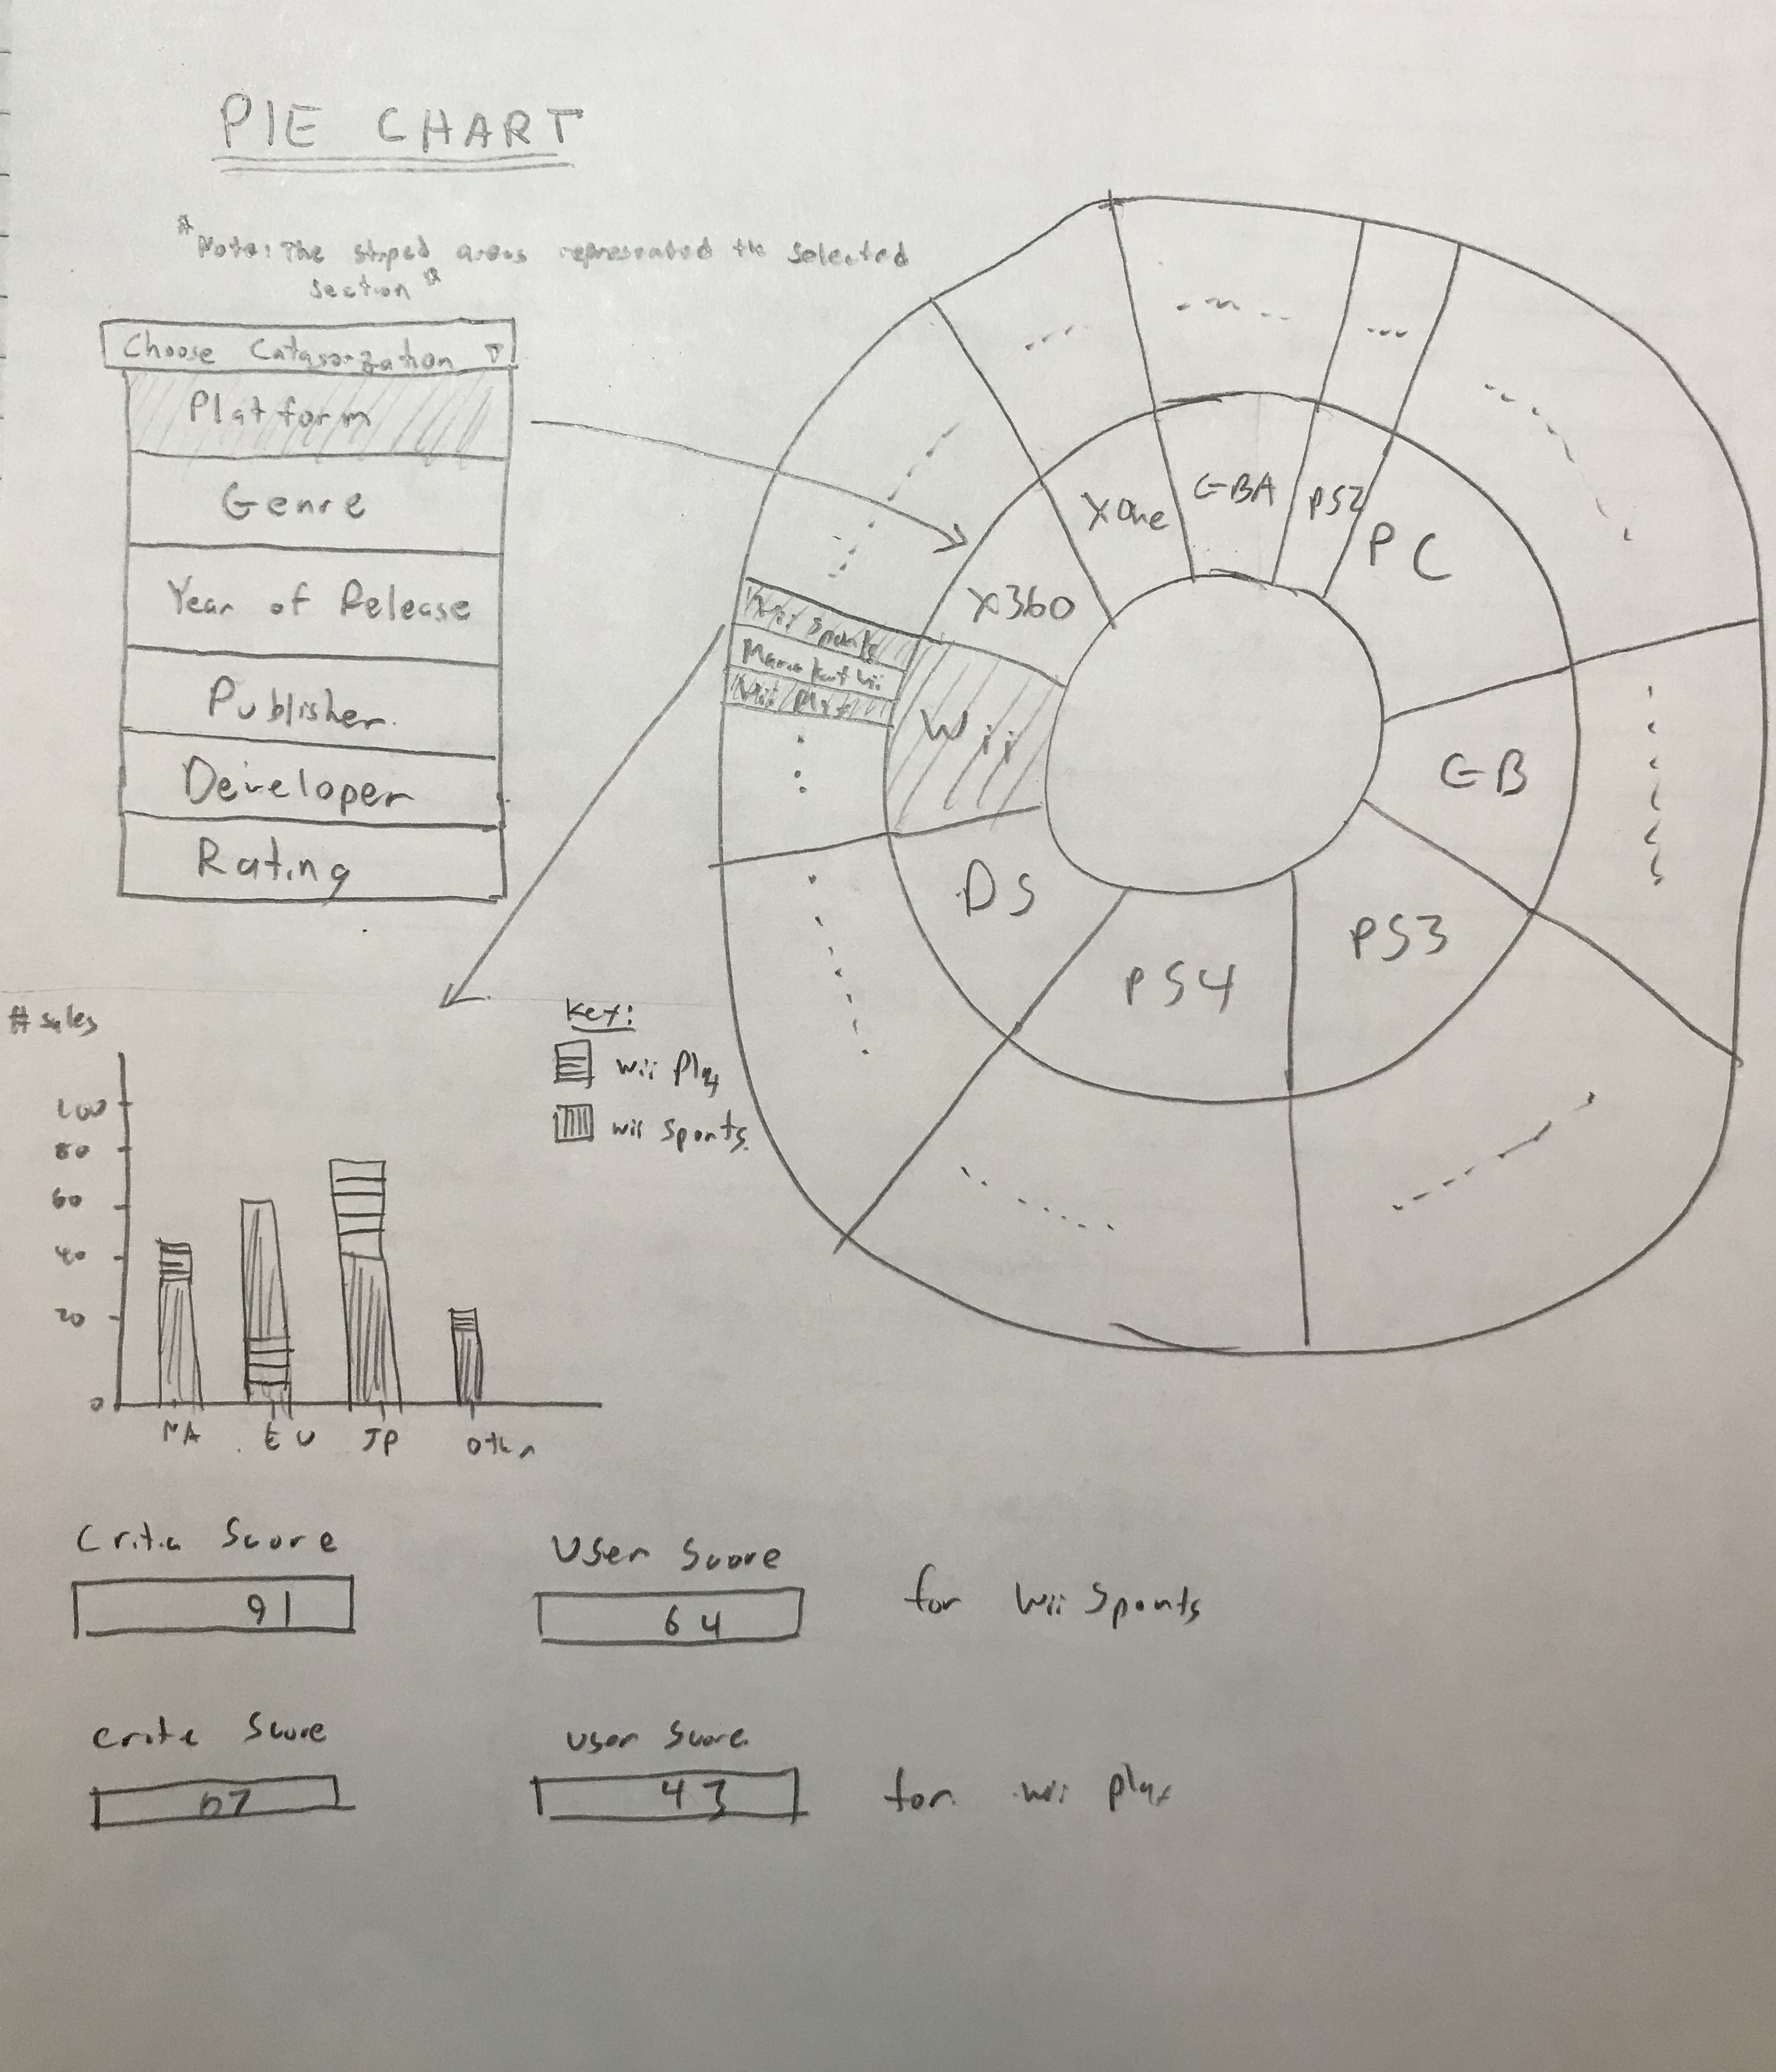 PIE CHART
*Note: The striped areas represented the selected
section*
Choose Catagorzation ▽
Platform
Genre
Year of Release
Publisher
Developer
Rating
XOne
GBA
PS2
PC
X360
Wii Sports
Mario Kart Wii
Wii Play
Wii
GB
DS
PS4
PS3
# sales
100
80
60
40
20
0
NA
EU
JP
Other
Key:
Wii Play
Wii Sports
Critic Score
User Score
91
64
for Wii Sports
Critic Score
User Score
43
for Wii Play